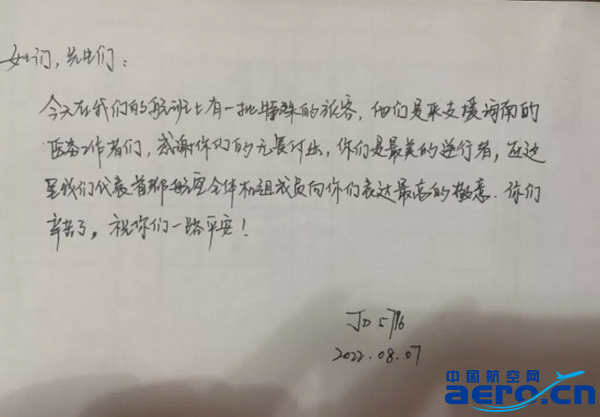 女士们，先生们：
今天在我们的航班上有一批特殊的旅客，他们是来支援海南的
医务工作者们，感谢你们的无畏付出，你们是最美的逆行者，在这
里我们代表首都航空全体机组成员向你们表达最高的敬意．你们
辛苦了，祝你们一路平安！
JD5716
2022.08.07
中国航空网
aero.cn